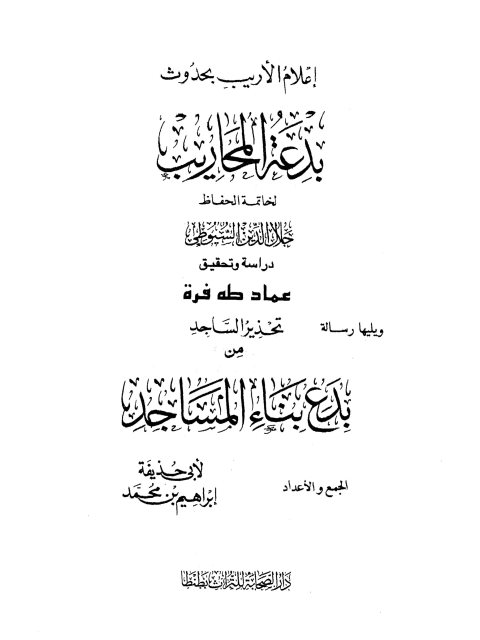 إعلام الأريب بحدوث
بدعة المحاريب
لخاتمة الحفاظ
جلال الدين السيوطي
دراسة وتحقيق
عماد طه فرة
ويليها رسالة تحذير الساجد
من
بدع بناء المساجد
الجمع والأعداد لأبي حذيفة
إبراهيم بن محمد
دار الصحابة للتراث بطنطا